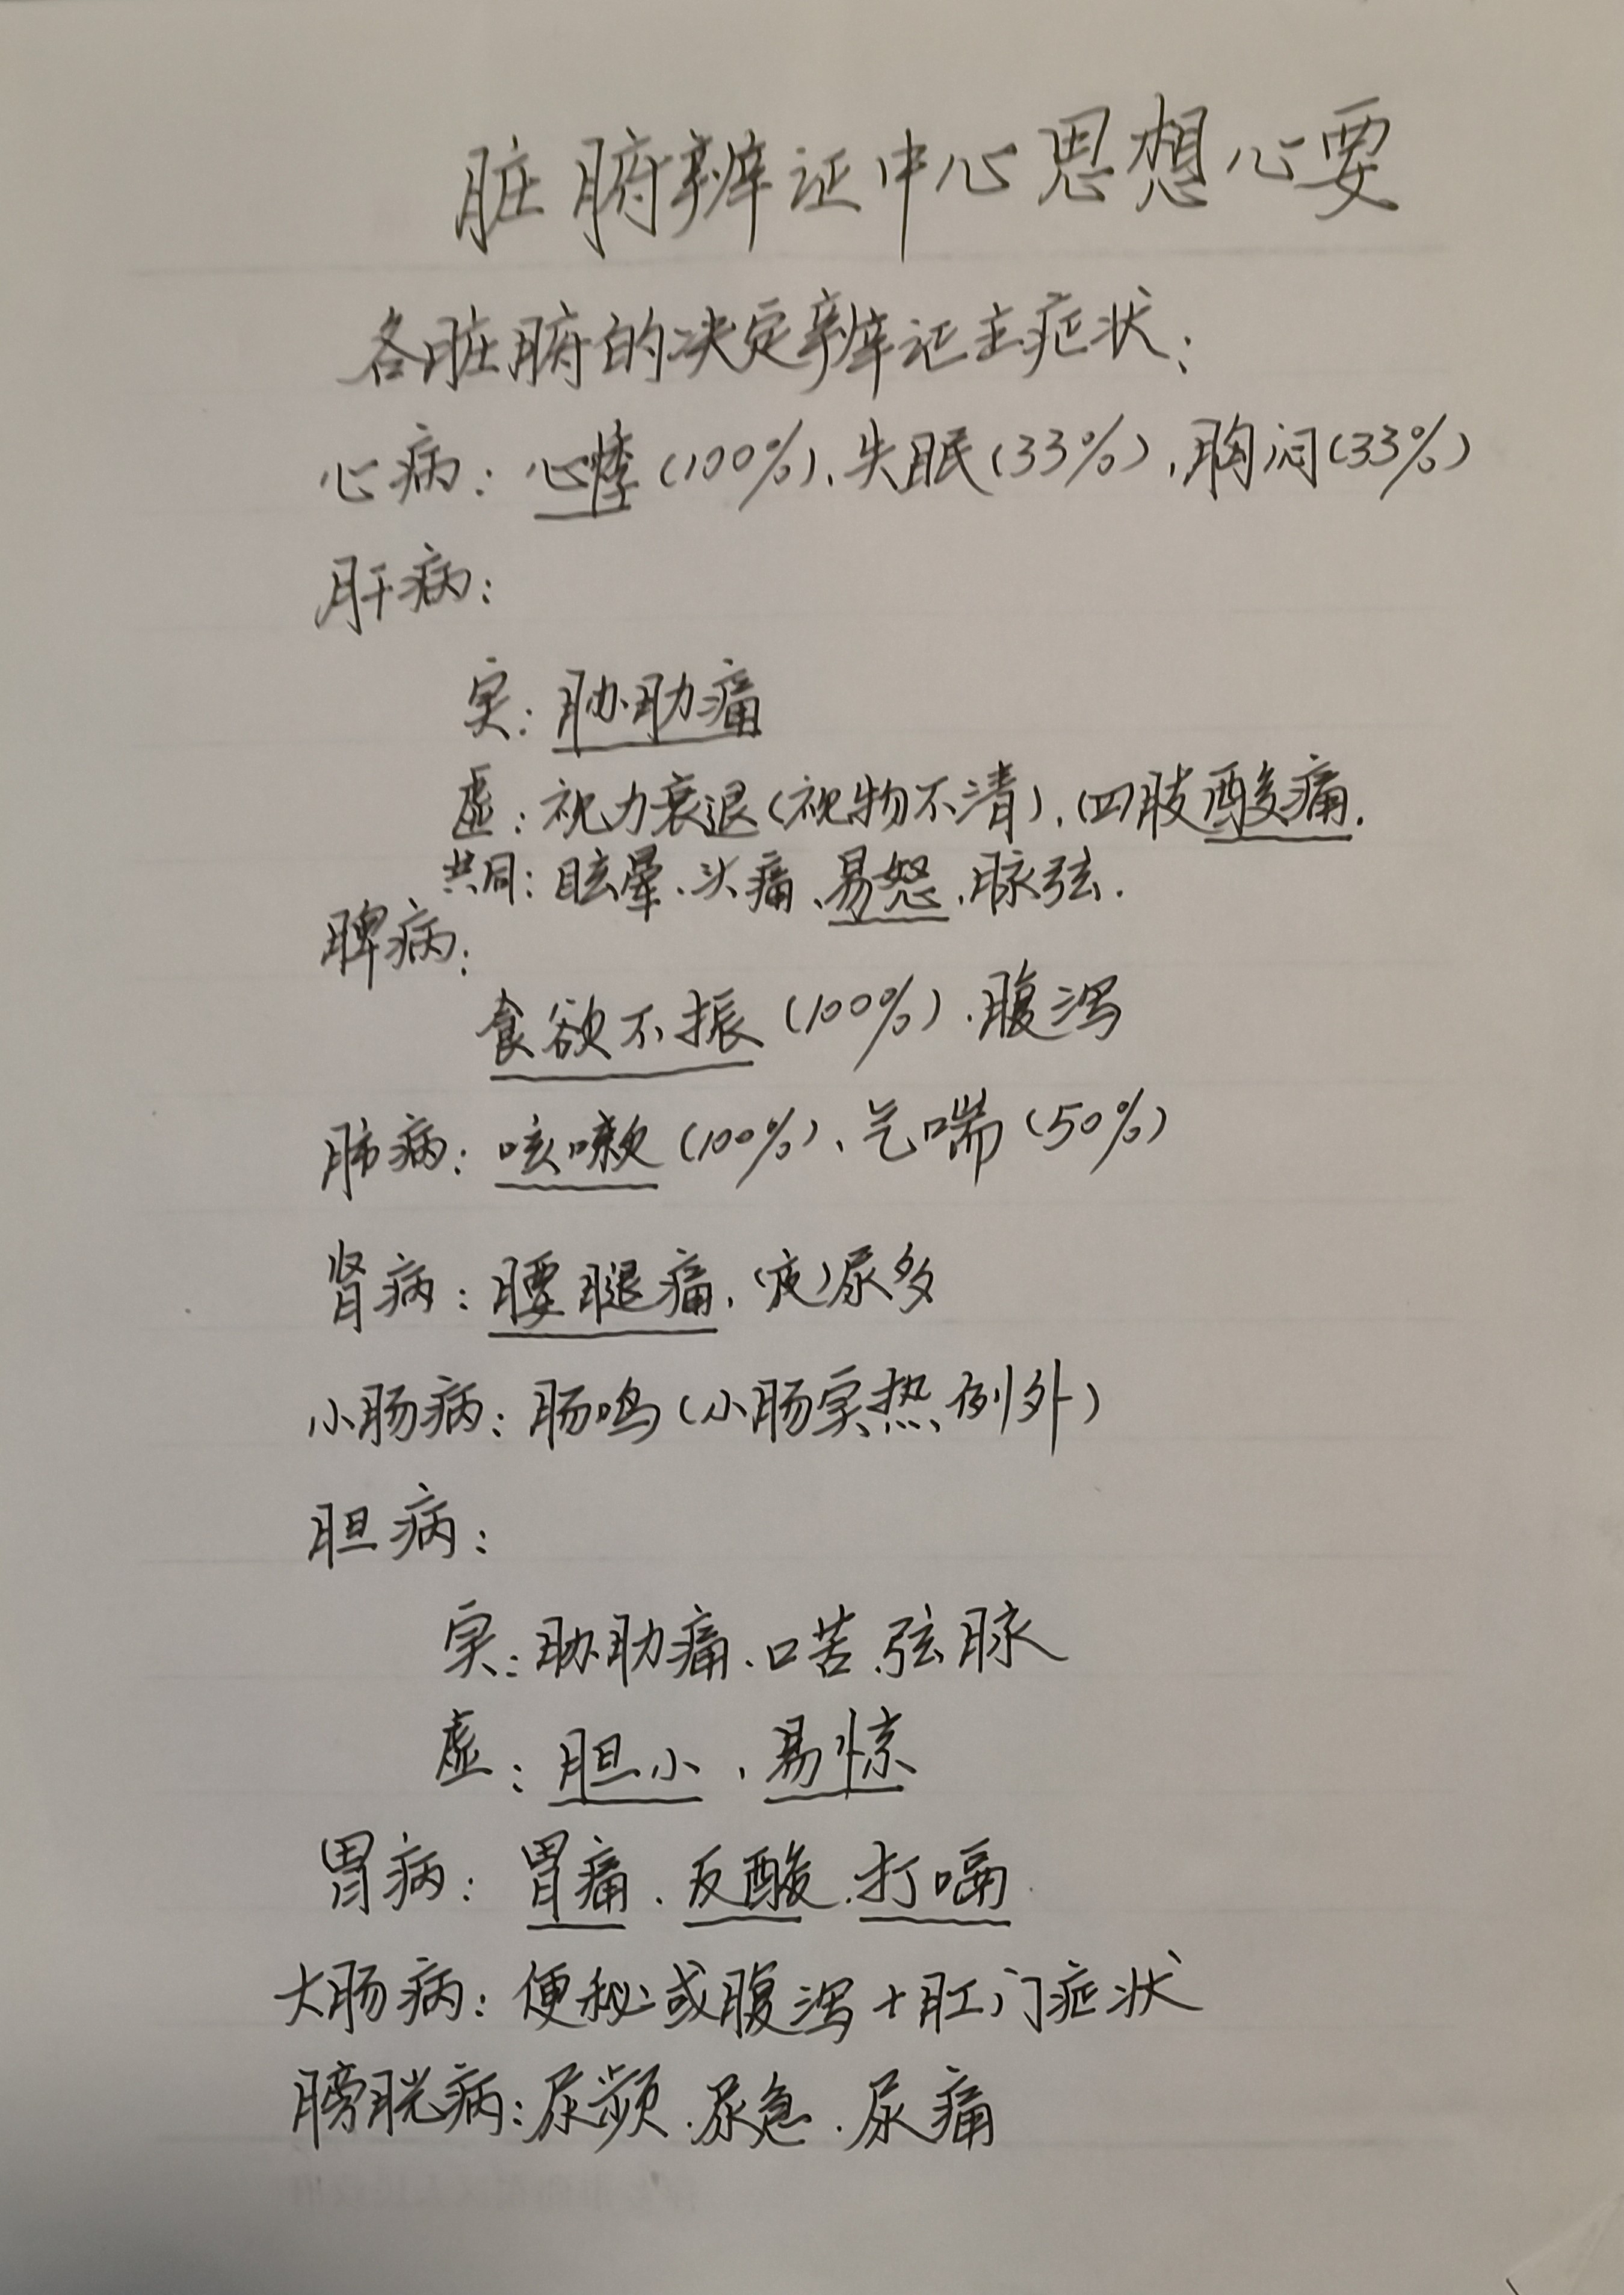 脏腑辨证中心思想心要
各脏腑的决定辨证主症状：
心病：心悸(100%)、失眠(33%)，胸闷(33%)
肝病：
实：胁肋痛
虚：视力衰退(视物不清)，四肢酸痛.
共同：眩晕、头痛、易怒、脉弦.
脾病：
食欲不振(100%)、腹泻
肺病：咳嗽(100%)、气喘(50%)
肾病：腰腿痛、(夜)尿多
小肠病：肠鸣(小肠实热例外)
胆病：
实：胁肋痛、口苦、弦脉
虚：胆小、易惊
胃病：胃痛、反酸、打嗝
大肠病：便秘或腹泻+肛门症状
膀胱病：尿频、尿急、尿痛